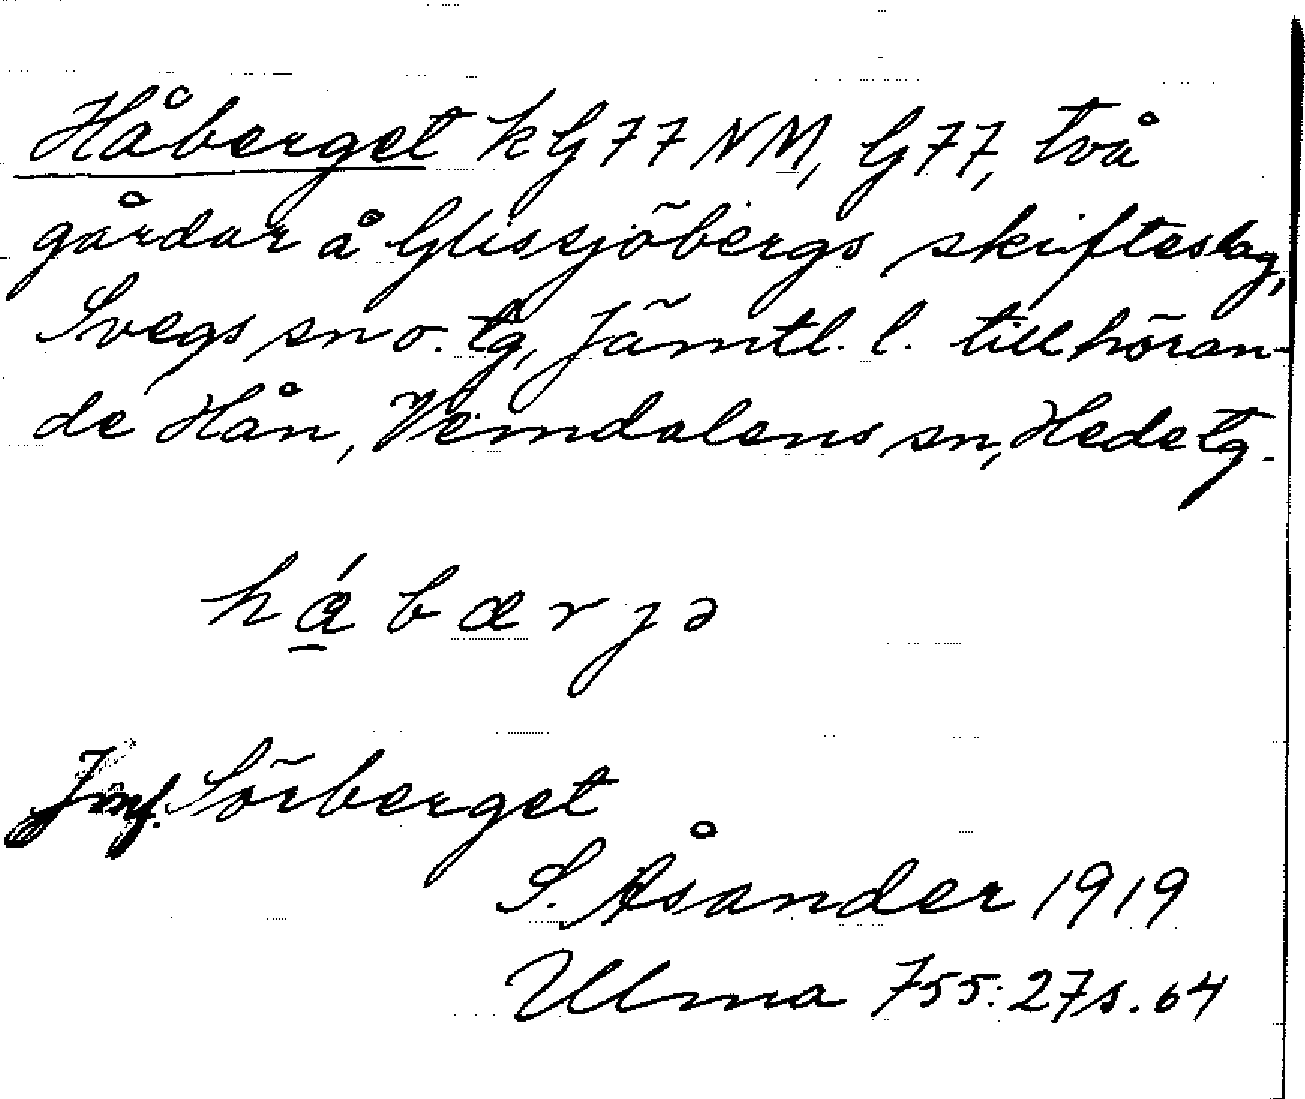 Håberget k G77 NM, G77, två
gårdar å Glissjöbergs skifteslag,
Svegs sn o. tg, Jämtl. l. tillhöran-
de Hån, Vemdalens sn, Hede tg.
há̱bærjə
Inf. Sörberget
S. Åsander 1919
Ulma 755:27 s. 64